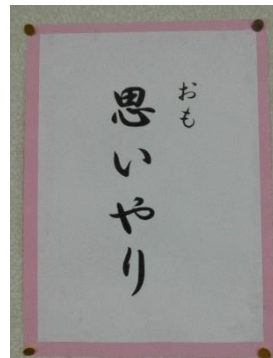 おも
思いやり